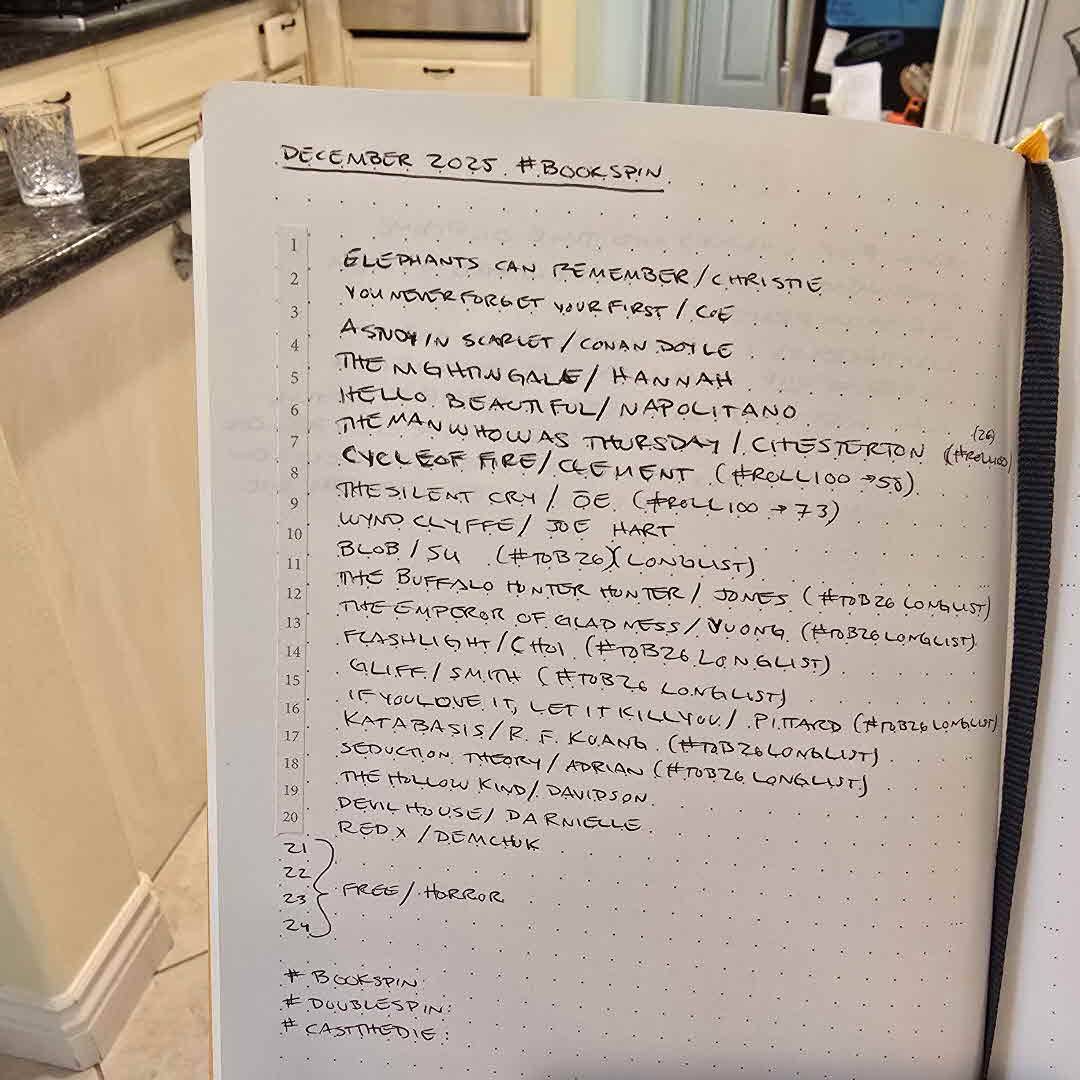 DECEMBER 2025 #BOOKSPIN
1 ELEPHANTS CAN REMEMBER / CHRISTIE
2 YOU NEVER FORGET YOUR FIRST / COE
3 A STUDY IN SCARLET / CONAN DOYLE
4 THE NIGHTINGALE / HANNAH
5 HELLO BEAUTIFUL / NAPOLITANO
6 THE MAN WHO WAS THURSDAY / CHESTERTON (#ROLL100) (26)
7 CYCLE OF FIRE / CLEMENT (#ROLL100 → 58)
8 THE SILENT CRY / ŌE (#ROLL100 → 73)
9 WYND CLYFFE / JOE HART
10 BLOB / SU (#TOB26)(LONGLIST)
11 THE BUFFALO HUNTER HUNTER / JONES (#TOB26 LONGLIST)
12 THE EMPEROR OF GLADNESS / VUONG (#TOB26 LONGLIST)
13 FLASHLIGHT / CHOI (#TOB26 LONGLIST)
14 GLIFF / SMITH (#TOB26 LONGLIST)
15 IF YOU LOVE IT, LET IT KILL YOU / PITTARD (#TOB26 LONGLIST)
16 KATABASIS / R. F. KUANG (#TOB26 LONGLIST)
17 SEDUCTION THEORY / ADRIAN (#TOB26 LONGLIST)
18 THE HOLLOW KIND / DAVIDSON
19 DEVIL HOUSE / DARNIELLE
20 RED X / DEMCHUK
21
22
23 FREE / HORROR
24
# BOOKSPIN:
# DOUBLESPIN:
# CASTTHEDIE: